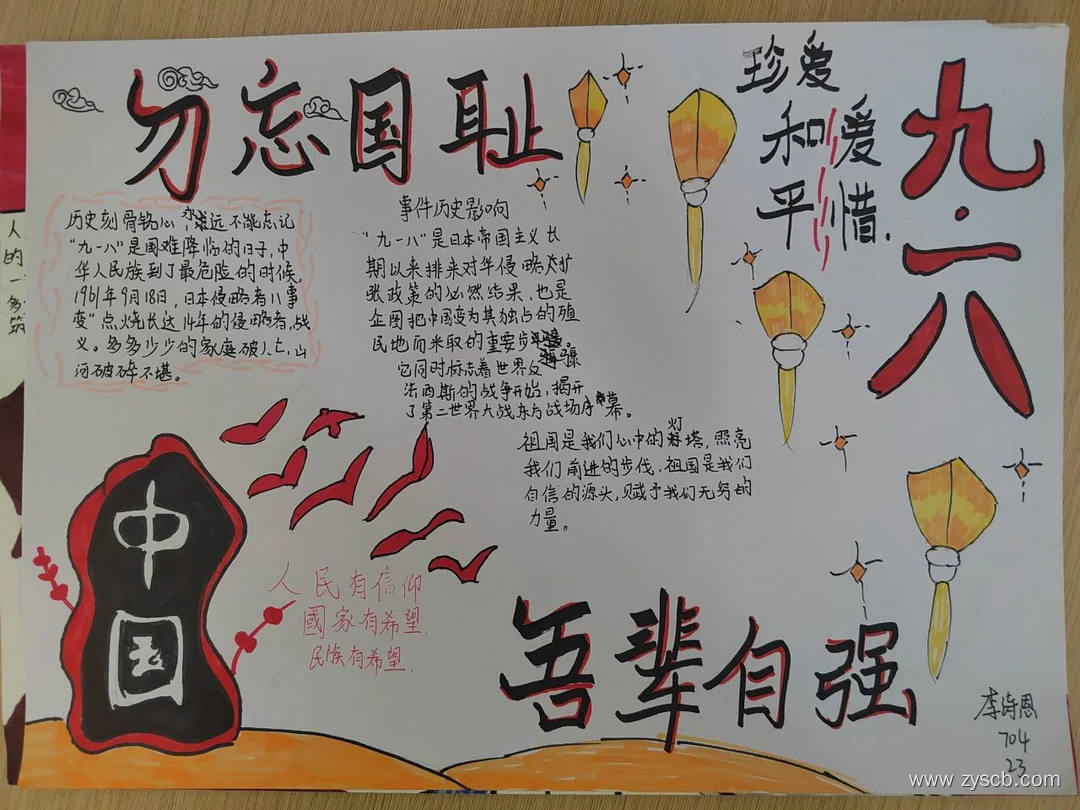 勿忘国耻
珍爱
和爱
平惜.
九·一八
历史刻骨铭心,永远不能忘记
"九一八"是国难降临的日子,中
华人民族到了最危险的时候,
1961年9月18日,日本侵略者八事
变"点烧长达14年的侵略者,战
义。多多少少的家庭破亡,山
河破碎不堪。
事件历史影响
"九一八"是日本帝国主义长
期以来推来对华侵略扩
张政策的必然结果,也是
企图把中国变为其独占的殖
民地而采取的重要步骤。
它同时标志着世界反
法西斯的战争开始,揭开
了第二世界大战东方战场序幕。
祖国是我们心中的灯塔,照亮
我们前进的步伐,祖国是我们
自信的源头,赋予我们无穷的
力量。
中国
人民有信仰
國家有希望.
民族有希望.
吾辈自强
李诗恩
704
23
人
的
一
www.zyscb.com